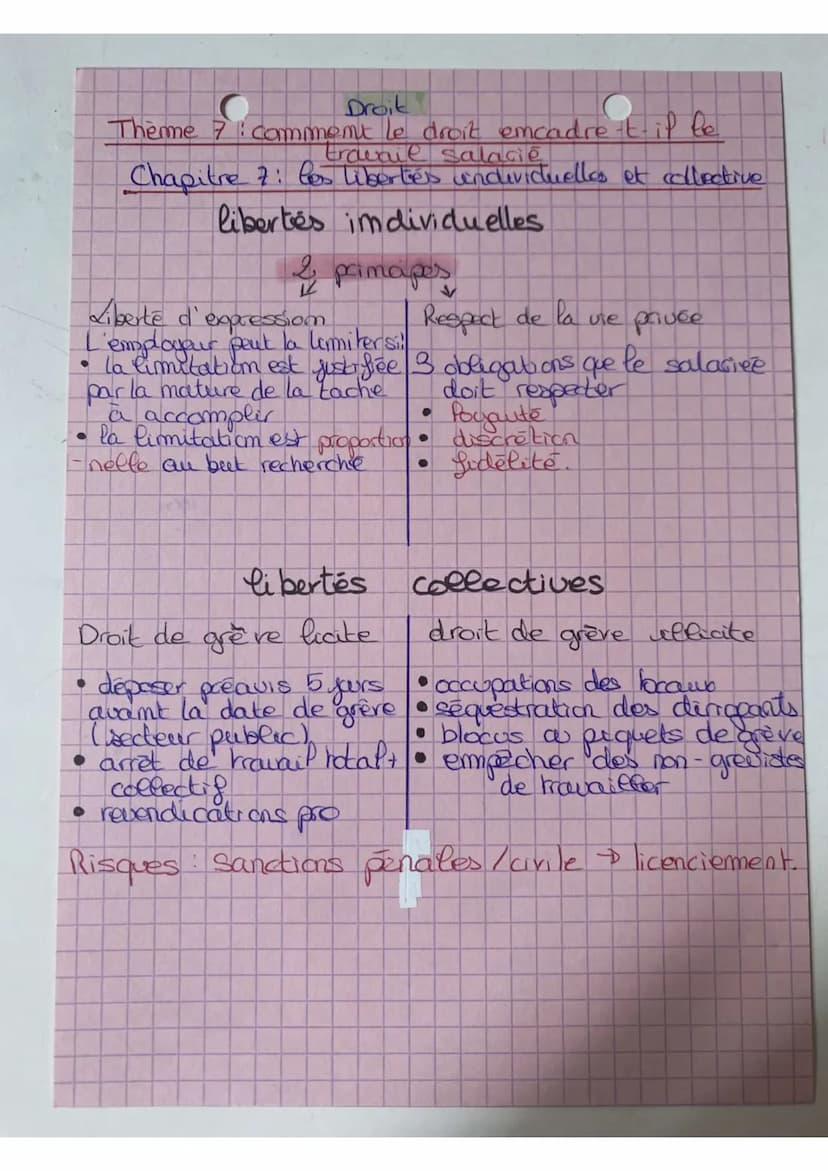 Droit
Thème 7 : comment le droit encadre-t-il le
travail salarié
Chapitre 7 : les libertés individuelles et collective
libertés individuelles
2 principes
Liberté d'expression
L'employeur peut la limiter si:
• la limitation est justifiée
par la nature de la tache
à accomplir
• la limitation est proportion
-nelle au but recherché
Respect de la vie privée
3 obligations que le salarié
doit respecter
• loyauté
• discrétion
• fidélité.
libertés collectives
Droit de grève licite
• déposer préavis 5 jours
avant la date de grève
(secteur public)
• arrêt de travail total +
collectif
• revendications pro
droit de grève illicite
• occupations des locaux
• séquestration des dirigeants
• blocus piquets de grève
• empêcher des non-grevistes
de travailler
Risques : Sanctions pénales / civile → licenciement.